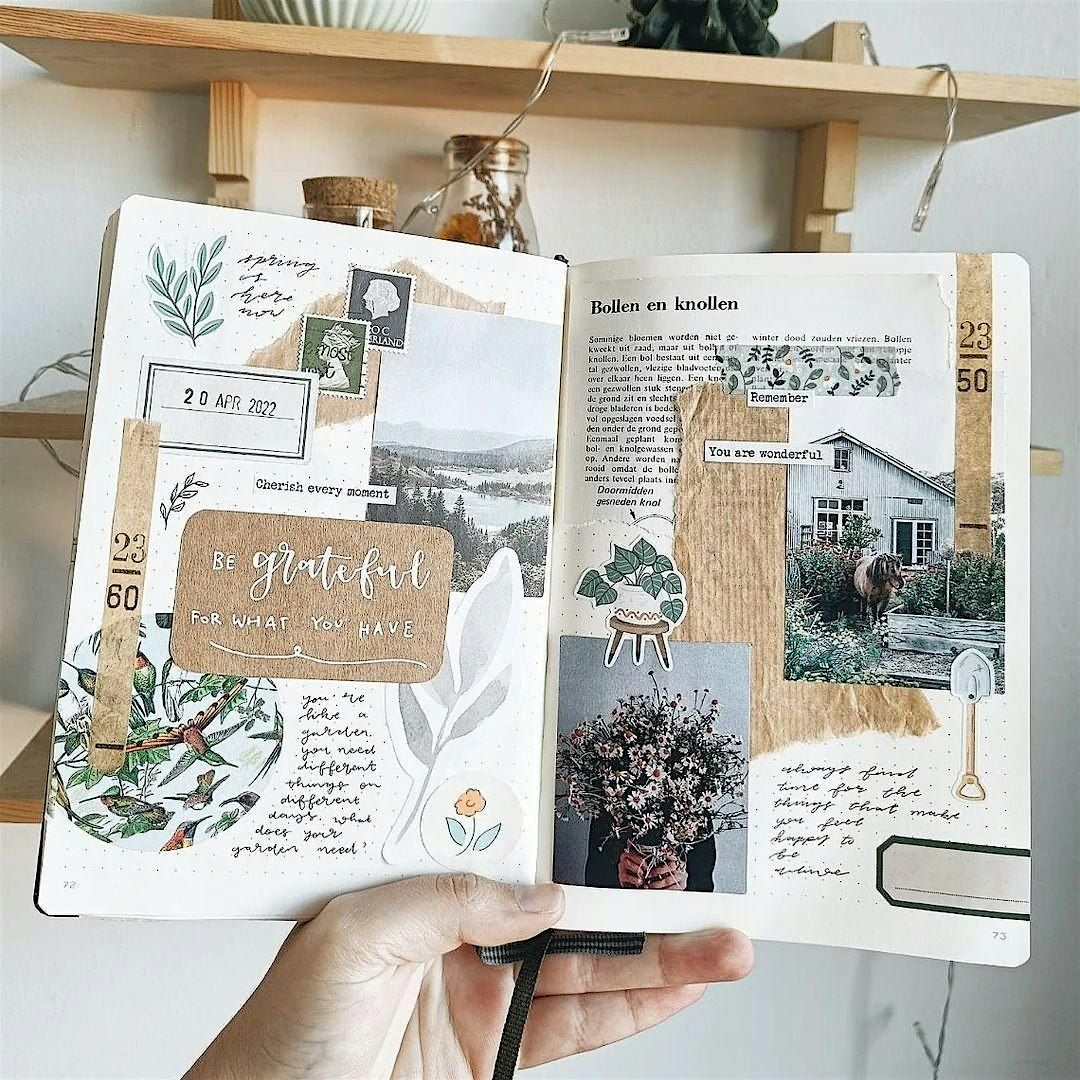 spring
is
here
now
20 APR 2022
Cherish every moment
BE grateful
FOR WHAT YOU HAVE
23
60
you're
like a
garden.
you need
different
things on
different
days. what
does your
garden need?
72
Bollen en knollen
Sommige bloemen worden niet ge-
kweekt uit zaad, maar uit bollen of
knollen. Een bol bestaat uit een
tal gezwollen, vlezige bladvoeten
over elkaar heen liggen. Een
een gezwollen stuk
de grond zit en slechts
droge bladeren is
vol opgeslagen voedsel
den onder de grond
Eenmaal geplant
bol- en knolgewassen
op. Andere worden
rooid omdat de
anders teveel plaats
winter dood zouden vriezen. Bollen
Doormidden
gesneden knol
Remember
You are wonderful
23
50
always find
time for the
things that make
you feel
happy to
be
alive
73